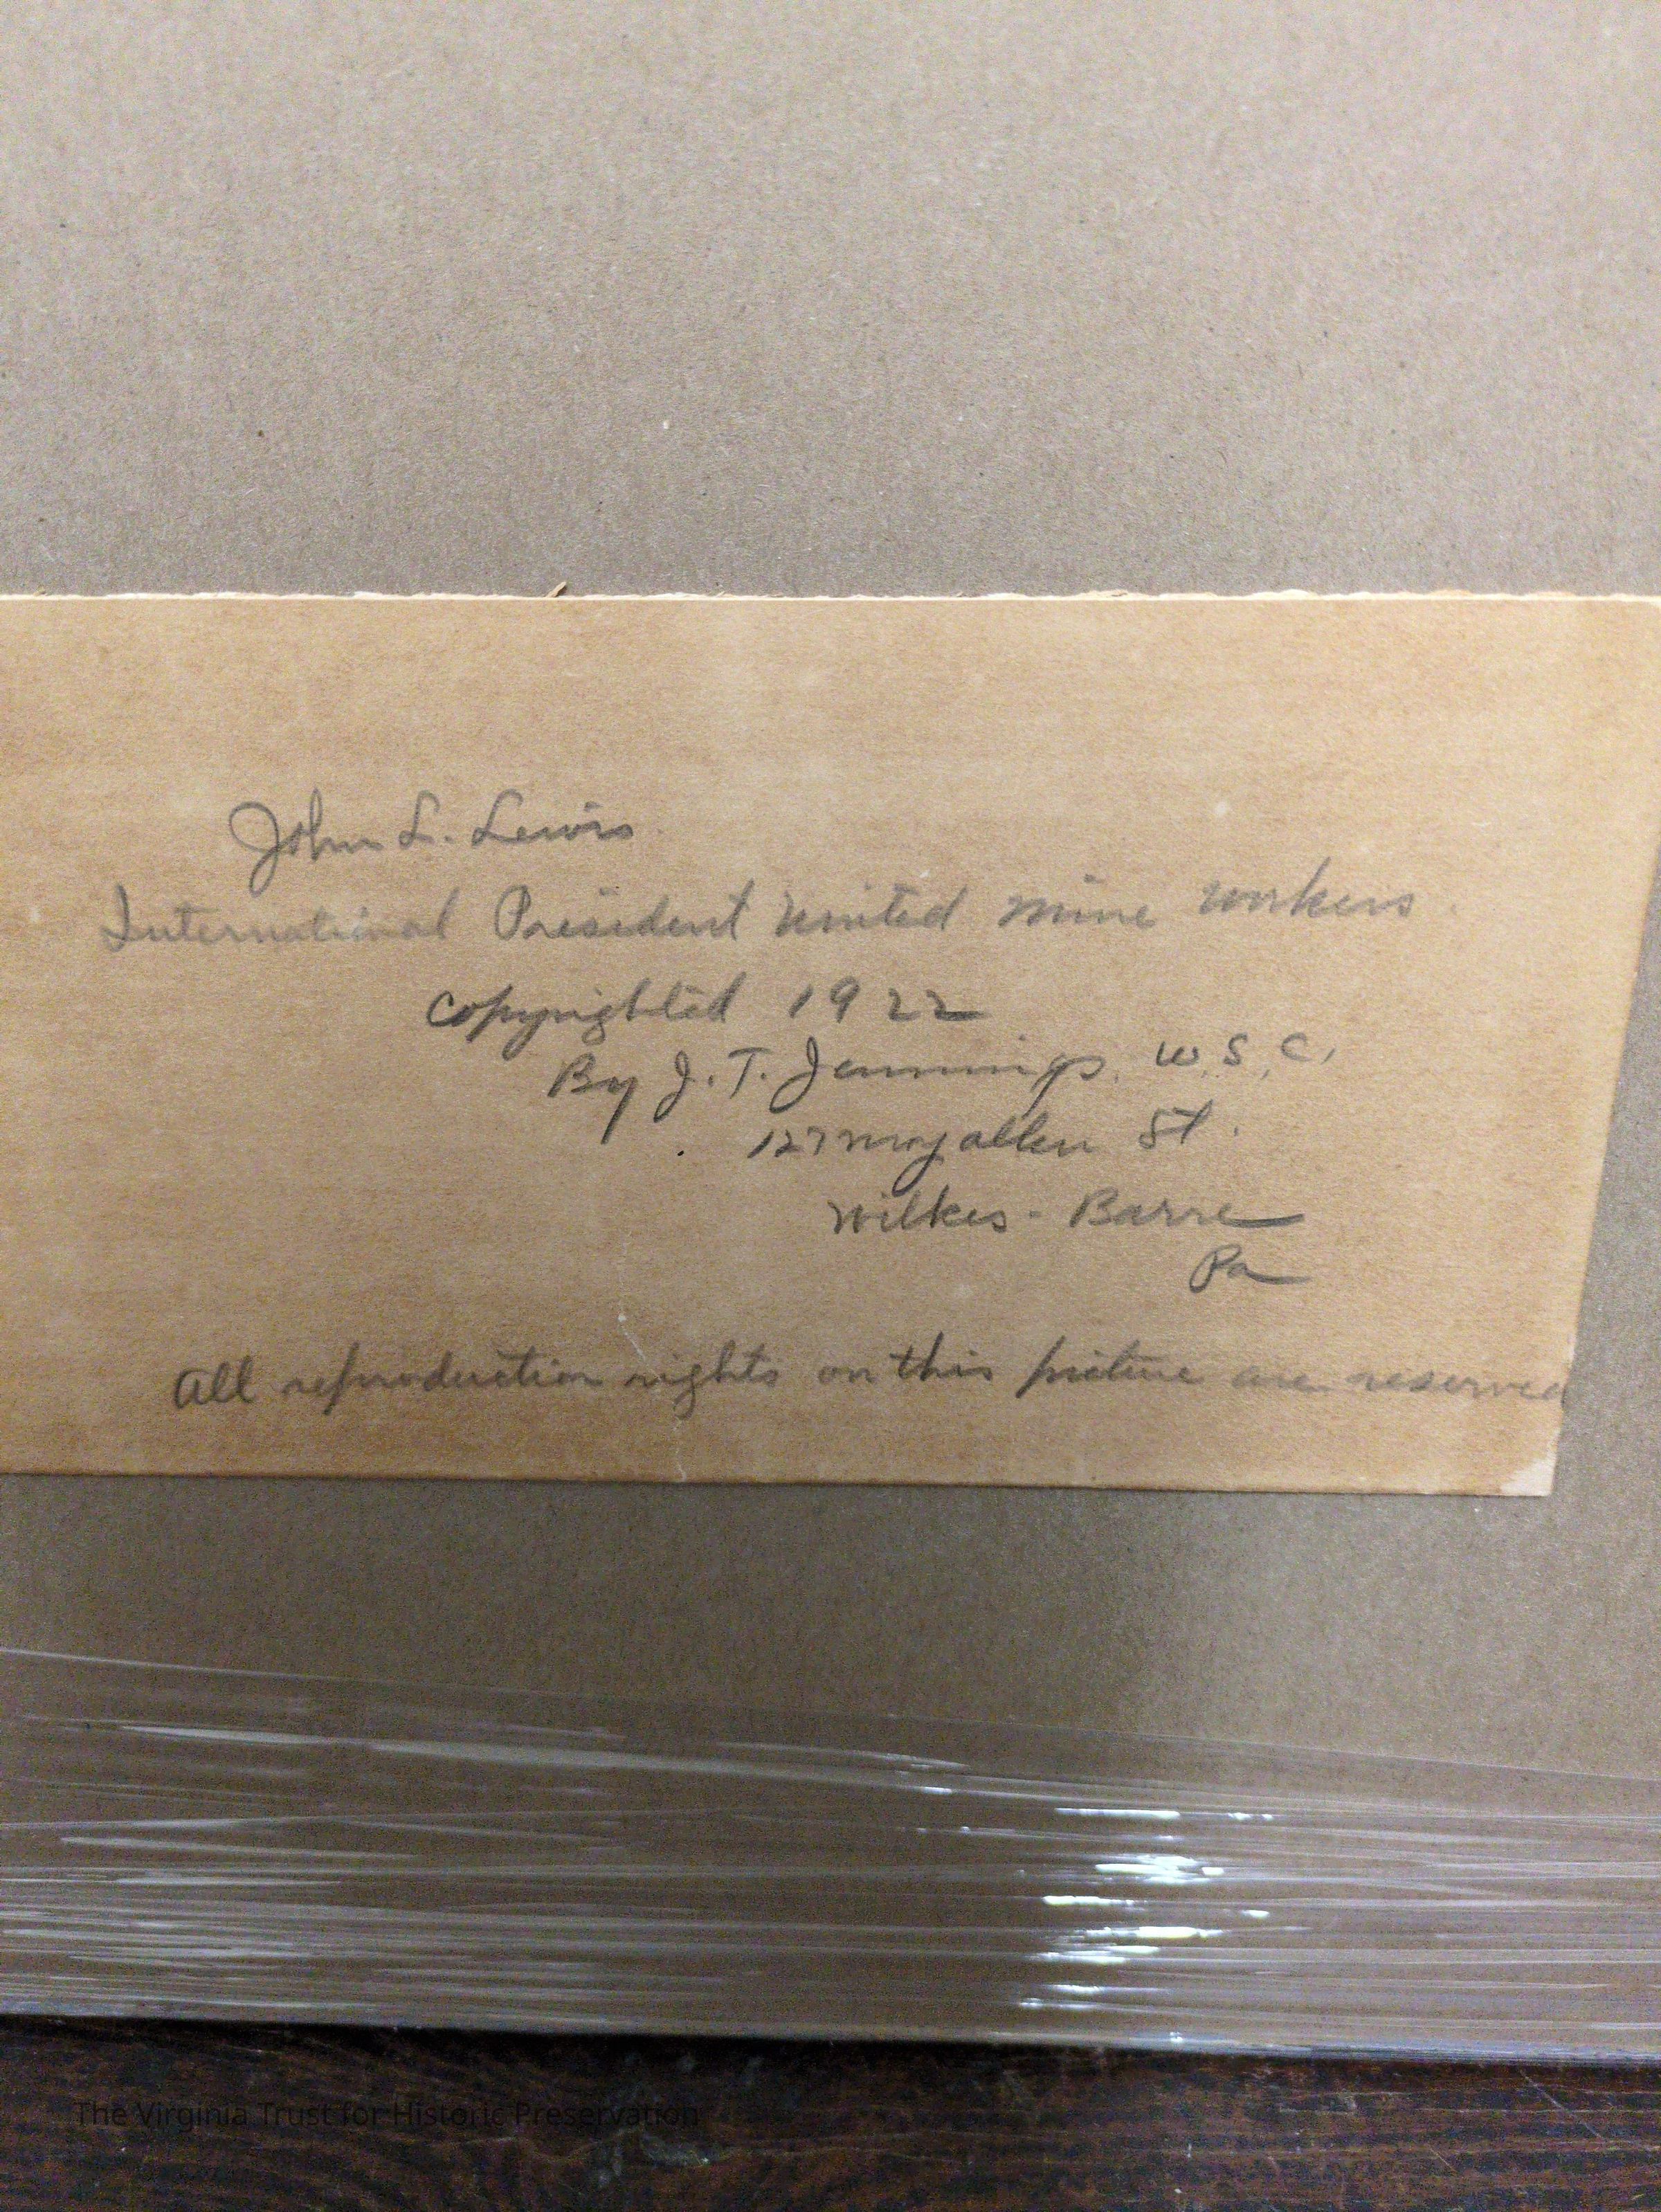 John L. Lewis
International President United mine workers
Copyrighted 1922
By J. T. Jennings. W. S. C.
127 Moyallen St.
Wilkes-Barre
Pa
All reproduction rights on this picture are reserved
The Virginia Trust for Historic Preservation